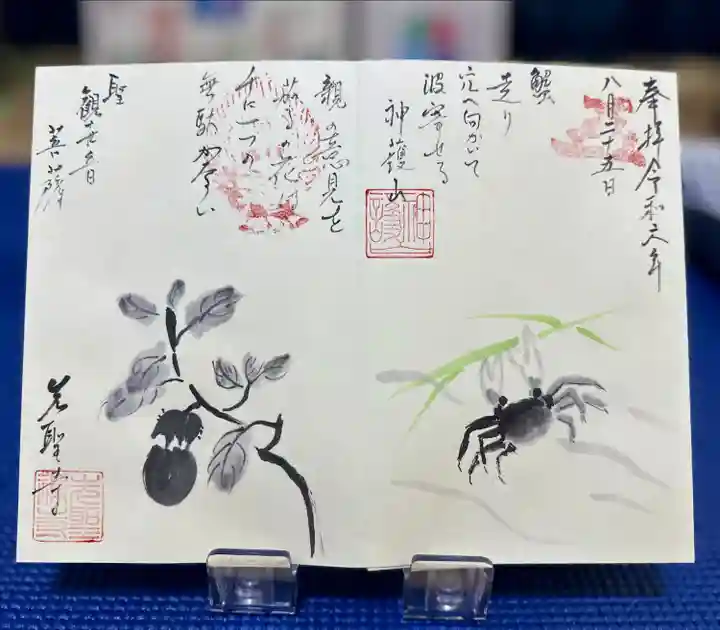 奉拝 令和六年
八月二十五日
蟹
走り
穴へ向かいて
波寄せる
神護山
親の意見を
茄子の花は
千に一つの
無駄がない
聖
観世音
菩薩
光聖寺